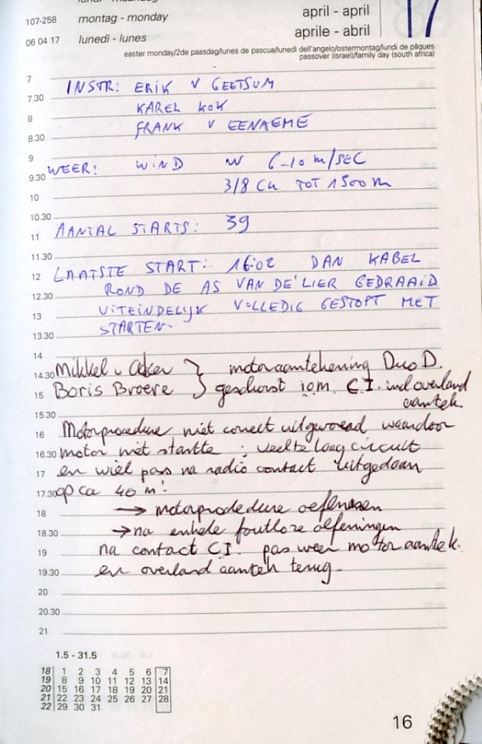 107-258 montag - monday april - april 17
06 04 17 lunedì - lunes aprile - abril
easter monday/2de paasdag/lunes de pascua/lunedì dell'angelo/ostermontag/lundi de pâques
passover (israel)/family day (south africa)
7
7.30 INSTR: ERIK V GEETSUM
8 KAREL KOK
8.30 FRANK V EENAEME
9
9.30 WEER: WIND W 6-10 M/SEC
10 3/8 CU TOT 1500 m
10.30
11 AANTAL STARTS: 39
11.30
12 LAATSTE START: 16:02 DAN KABEL
12.30 ROND DE AS VAN DE LIER GEDRAAID
13 UITEINDELIJK VOLLEDIG GESTOPT MET
13.30 STARTEN.
14
14.30 Mikkel v Acker } motoraantekening Duo D.
15 Boris Broeve } geschorst i.o.m. C.I. incl overland
15.30 aantek.
16 Motorprocedure niet correct uitgevoerd waardoor
16.30 motor niet startte; veel te laag circuit
17 en wiel pas na radio contact uitgedaan
17.30 op ca 40 m!
18 → motorprodedure oefenen
18.30 → na enkele foutloze oefeningen
19 na contact C.I. pas weer motoraantek.
19.30 en overland aantek terug.
20
20.30
21
1.5 - 31.5
18 1 2 3 4 5 6 7
19 8 9 10 11 12 13 14
20 15 16 17 18 19 20 21
21 22 23 24 25 26 27 28
22 29 30 31
16